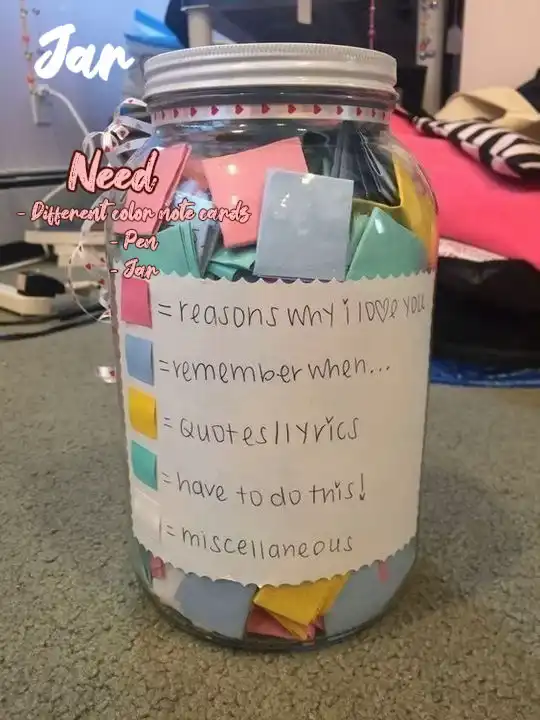 Jar
Need
- Different color note cards
- Pen
- Jar
= reasons why i love you
= remember when...
= Quotes/lyrics
= have to do this!
= miscellaneous